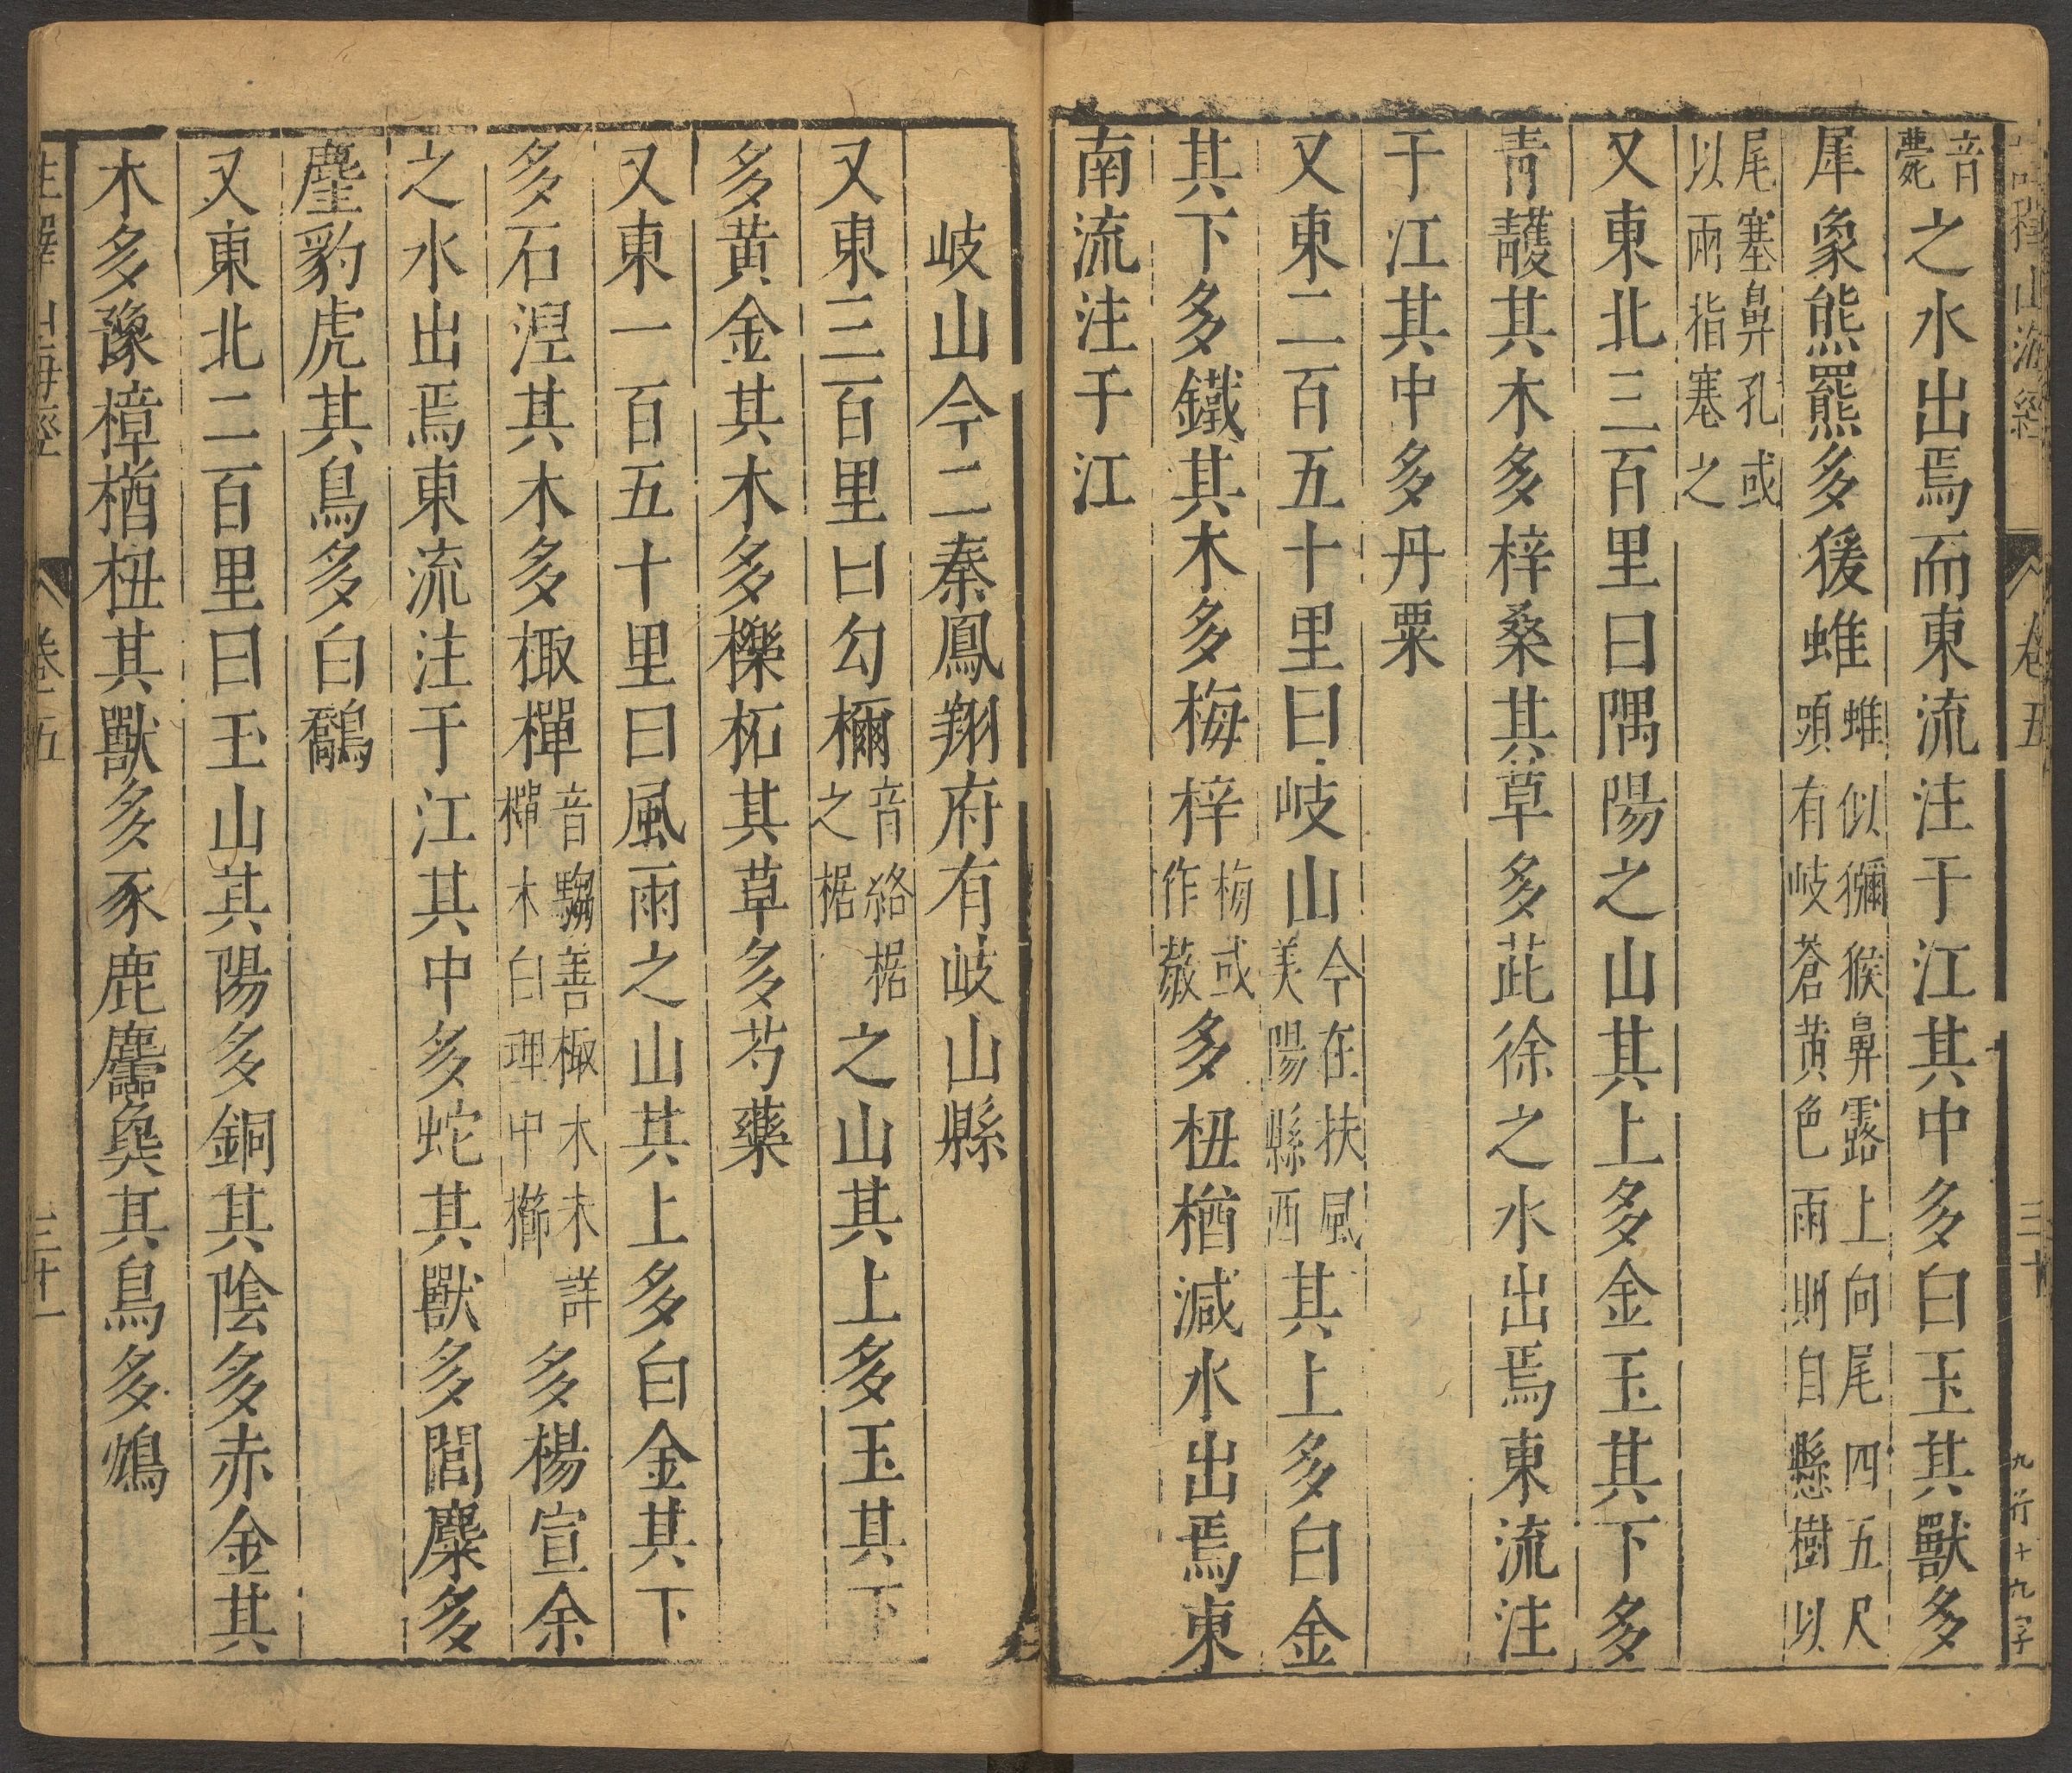 山海經 卷五 三十 九行十九字
音薨之水出焉而東流注于江其中多白玉其獸多
犀象熊羆多猨蜼蜼似獼猴鼻露上向尾四五尺頭有岐蒼黄色雨則自懸樹以
尾塞鼻孔或以兩指塞之
又東北三百里曰隅陽之山其上多金玉其下多
青雘其木多梓桑其草多茈徐之水出焉東流注
于江其中多丹粟
又東二百五十里曰岐山今在扶風美陽縣西其上多白金
其下多鐵其木多梅梓梅或作藙多杻楢減水出焉東
南流注于江
岐山今二秦鳳翔府有岐山縣
又東三百里曰勾檷音絡椐之椐之山其上多玉其下
多黄金其木多櫟柘其草多芍藥
又東一百五十里曰風雨之山其上多白金其下
多石涅其木多棷樿音騶善棷木未詳樿木白理中櫛多楊宣余
之水出焉東流注于江其中多蛇其獸多閭麋多
麈豹虎其鳥多白鷮
又東北二百里曰玉山其陽多銅其陰多赤金其
木多豫樟楢杻其獸多豕鹿麢㚟其鳥多鴆
注釋山海經 卷五 三十一